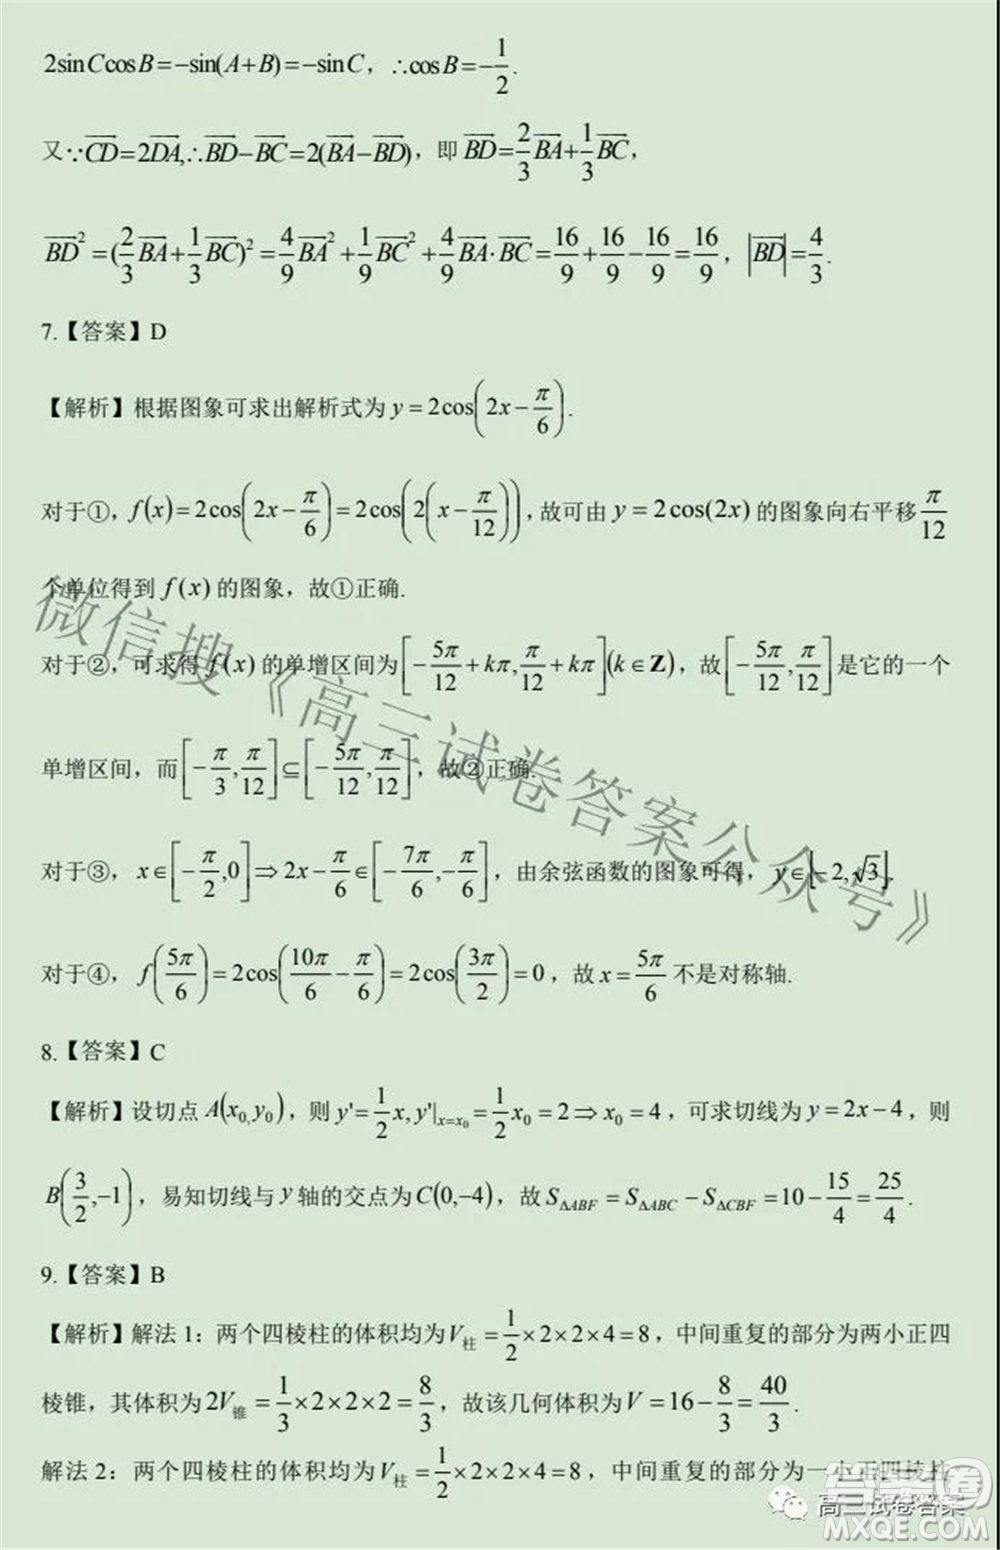 2sinCcosB=−sin(A+B)=−sinC，∴cosB=−1/2.
又∵CD=2DA,∴BD−BC=2(BA−BD)，即BD=2/3BA+1/3BC，
BD²=(2/3BA+1/3BC)²=4/9BA²+1/9BC²+4/9BA·BC=16/9+16/9−16/9=16/9，|BD|=4/3.
7.【答案】D
【解析】根据图象可求出解析式为y=2cos(2x−π/6).
对于①，f(x)=2cos(2x−π/6)=2cos(2(x−π/12))，故可由y=2cos(2x)的图象向右平移π/12
个单位得到f(x)的图象，故①正确.
对于②，可求得f(x)的单增区间为[−5π/12+kπ,π/12+kπ](k∈Z)，故[−5π/12,π/12]是它的一个
单增区间，而[−π/3,π/12]⊆[−5π/12,π/12]，故②正确.
对于③，x∈[−π/2,0]⇒2x−π/6∈[−7π/6,−π/6]，由余弦函数的图象可得，y∈[−2,√3].
对于④，f(5π/6)=2cos(10π/6−π/6)=2cos(3π/2)=0，故x=5π/6不是对称轴.
8.【答案】C
【解析】设切点A(x₀,y₀)，则y'=1/2x,y'|x=x₀=1/2x₀=2⇒x₀=4，可求切线为y=2x−4，则
B(3/2,−1)，易知切线与y轴的交点为C(0,−4)，故S△ABF=S△ABC−S△CBF=10−15/4=25/4.
9.【答案】B
【解析】解法1：两个四棱柱的体积均为V柱=1/2×2×2×4=8，中间重复的部分为两小正四
棱锥，其体积为2V锥=1/3×2×2×2=8/3，故该几何体积为V=16−8/3=40/3.
解法2：两个四棱柱的体积均为V柱=1/2×2×2×4=8，中间重复的部分为一小正四棱柱
微信搜《高三试卷答案公众号》
高三试卷答案
答案圈
MXQE.COM